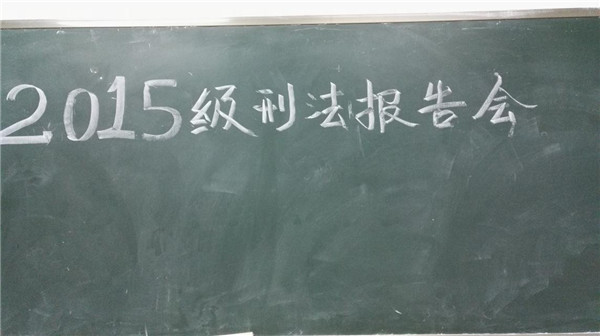 2015级刑法报告会